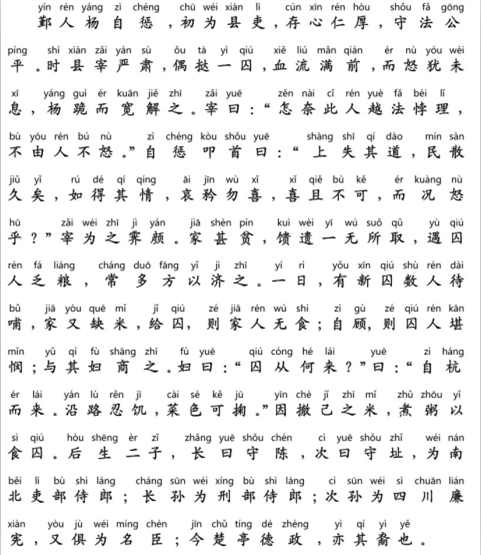 yín rén yáng zì chéng chū wéi xiàn lì cún xīn rén hòu shǒu fǎ gōng
鄞人杨自惩，初为县吏，存心仁厚，守法公
píng shí xiàn zǎi yán sù ǒu tà yì qiú xiě liú mǎn qián ér nù yóu wèi
平。时县宰严肃，偶挞一囚，血流满前，而怒犹未
xī yáng guì ér kuān jiě zhī zǎi yuē zěn nài cǐ rén yuè fǎ bèi lǐ
息，杨跪而宽解之。宰曰：“怎奈此人越法悖理，
bù yóu rén bú nù zì chéng kòu shǒu yuē shàng shī qí dào mín sàn
不由人不怒。”自惩叩首曰：“上失其道，民散
jiǔ yǐ rú dé qí qíng āi jīn wù xǐ xǐ qiě bù kě ér kuàng nù
久矣，如得其情，哀矜勿喜，喜且不可，而况怒
hū zǎi wéi zhī jì yán jiā shèn pín kuì wèi yī wú suǒ qǔ yù qiú
乎？”宰为之霁颜。家甚贫，馈遗一无所取，遇囚
rén fá liáng cháng duō fāng yǐ jì zhī yí rì yǒu xīn qiú shù rén dài
人乏粮，常多方以济之。一日，有新囚数人待
bǔ jiā yòu quē mǐ jǐ qiú zé jiā rén wú shí zì gù zé qiú rén kān
哺，家又缺米，给囚，则家人无食；自顾，则囚人堪
mǐn yǔ qí fù shāng zhī fù yuē qiú cóng hé lái yuē zì háng
悯；与其妇商之。妇曰：“囚从何来？”曰：“自杭
ér lái yán lù rěn jī cài sè kě jū yīn chè jǐ zhī mǐ zhǔ zhōu yǐ
而来。沿路忍饥，菜色可掬。”因撤己之米，煮粥以
sì qiú hòu shēng èr zǐ zhǎng yuē shǒu chén cì yuē shǒu zhǐ wéi nán
食囚。后生二子，长曰守陈，次曰守址，为南
běi lì bù shì láng cháng sūn wéi xíng bù shì láng cì sūn wéi sì chuān lián
北吏部侍郎；长孙为刑部侍郎；次孙为四川廉
xiàn yòu jù wéi míng chén jīn chǔ tíng dé zhèng yì qí yì yě
宪，又俱为名臣；今楚亭德政，亦其裔也。